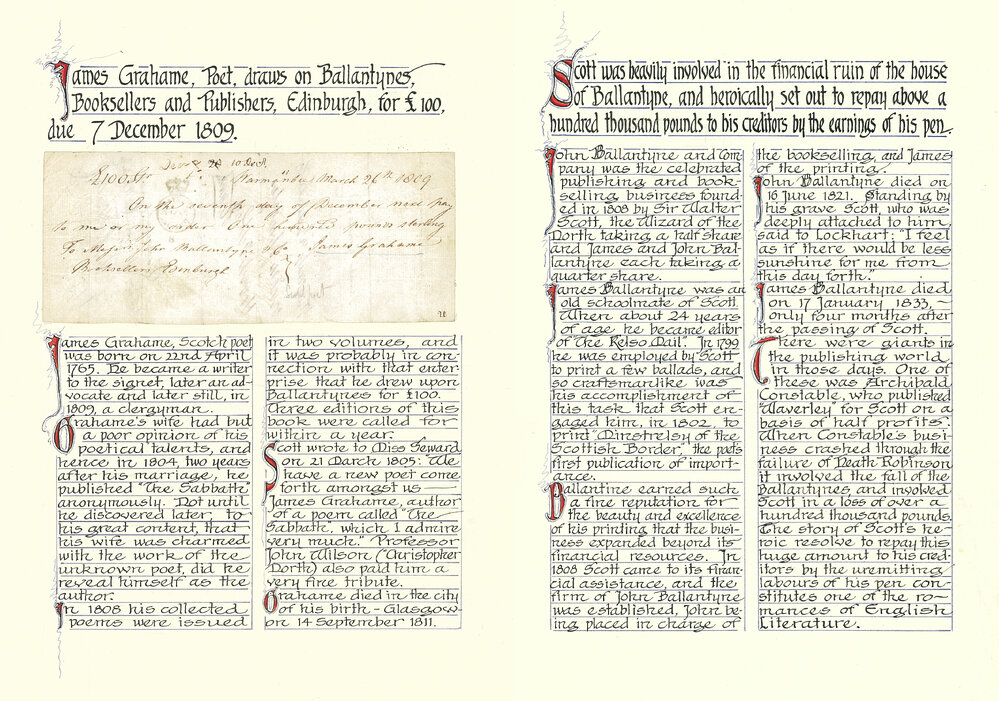 James Grahame, Poet, draws on Ballantynes,
Booksellers and Publishers, Edinburgh, for £100,
due 7 December 1809.
10 Dech
£100. Str
March 26th 1809
On the seventh day of December next pay
to me or my order One hundred pounds sterling
To Messrs John Ballantyne & Co James Grahame
Booksellers Edinburgh
James Grahame, Scotch poet
was born on 22nd April
1765. He became a writer
to the signet, later an ad-
vocate and later still, in
1809, a clergyman.
Grahame's wife had but
a poor opinion of his
poetical talents, and
hence in 1804, two years
after his marriage, he
published "The Sabbath"
anonymously. Not until
he discovered later, to
his great content, that
his wife was charmed
with the work of the
unknown poet, did he
reveal himself as the
author.
In 1808 his collected
poems were issued
in two volumes, and
it was probably in con-
nection with that enter-
prise that he drew upon
Ballantynes for £100.
Three editions of this
book were called for
within a year.
Scott wrote to Miss Seward
on 21 March 1805: "We
have a new poet come
forth amongst us —
James Grahame, author
of a poem called "The
Sabbath", which I admire
very much." Professor
John Wilson ("Christopher
North") also paid him a
very fine tribute.
Grahame died in the city
of his birth - Glasgow-
on 14 September 1811.
Scott was heavily involved in the financial ruin of the house
of Ballantyne, and heroically set out to repay above a
hundred thousand pounds to his creditors by the earnings of his pen.
John Ballantyne and Com
pany was the celebrated
publishing and book-
selling business found-
ed in 1808 by Sir Walter
Scott, the Wizard of the
North taking a half share
and James and John Bal-
lantyne each taking a
quarter share.
James Ballantyne was an
old schoolmate of Scott.
When about 24 years
of age he became editor
of "The Kelso Mail". In 1799
he was employed by Scott
to print a few ballads, and
so craftsmanlike was
his accomplishment of
this task that Scott en-
gaged him, in 1802, to
print "Minstrelsy of the
Scottish Border," the poet's
first publication of import-
ance.
Ballantine earned such
a fine reputation for
the beauty and excellence
of his printing that the busi-
ness expanded beyond its
financial resources. In
1808 Scott came to its finan-
cial assistance, and the
firm of John Ballantyne
was established, John be-
ing placed in charge of
the bookselling, and James
of the printing.
John Ballantyne died on
16 June 1821. Standing by
his grave Scott, who was
deeply attached to him,
said to Lockhart: "I feel
as if there would be less
sunshine for me from
this day forth."
James Ballantyne died
on 17 January 1833, ~
only four months after
the passing of Scott.
There were giants in
the publishing world
in those days. One of
these was Archibald
Constable, who published
Waverley for Scott on a
basis of half profits.
When Constable's busi-
ness crashed through the
failure of Death Robinson
it involved the fall of the
Ballantynes, and involved
Scott in a loss of over a
hundred thousand pounds.
The story of Scott's he-
roic resolve to repay this
huge amount to his cred-
itors by the unremitting
labours of his pen con-
stitutes one of the ro-
mances of English
Literature.